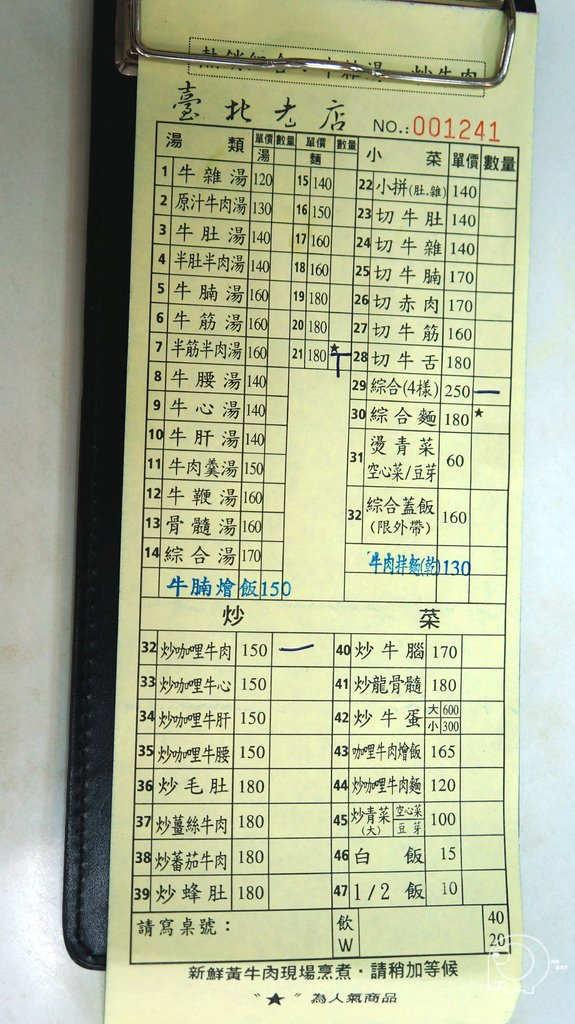 臺北老店 NO.:001241
湯類 單價 數量 單價 數量 小菜 單價 數量
湯 麵
1 牛雜湯 120 15 140 22 小拼(肚.雜) 140
2 原汁牛肉湯 130 16 150 23 切牛肚 140
3 牛肚湯 140 17 160 24 切牛雜 140
4 半肚半肉湯 140 18 160 25 切牛腩 170
5 牛腩湯 160 19 180 26 切赤肉 170
6 牛筋湯 160 20 180 27 切牛筋 160
7 半筋半肉湯 160 21 180 ★ 28 切牛舌 180
8 牛腰湯 140 29 綜合(4樣) 250 一
9 牛心湯 140 30 綜合麵 180 ★
10 牛肝湯 140 31 燙青菜 60
11 牛肉羹湯 150 空心菜/豆芽
12 牛鞭湯 160 32 綜合蓋飯 160
13 骨髓湯 160 (限外帶)
14 綜合湯 170 牛肉拌麵(乾)130
牛腩燴飯150
炒菜
32 炒咖哩牛肉 150 一 40 炒牛腦 170
33 炒咖哩牛心 150 41 炒龍骨髓 180
34 炒咖哩牛肝 150 42 炒牛蛋 大 600 小 300
35 炒咖哩牛腰 150 43 咖哩牛肉燴飯 165
36 炒毛肚 180 44 炒咖哩牛肉麵 120
37 炒薑絲牛肉 180 45 炒青菜(大) 空心菜 豆芽 100
38 炒蕃茄牛肉 180 46 白飯 15
39 炒蜂肚 180 47 1/2飯 10
請寫桌號： 飲 40
W 20
新鮮黃牛肉現場烹煮·請稍加等候
"★"為人氣商品